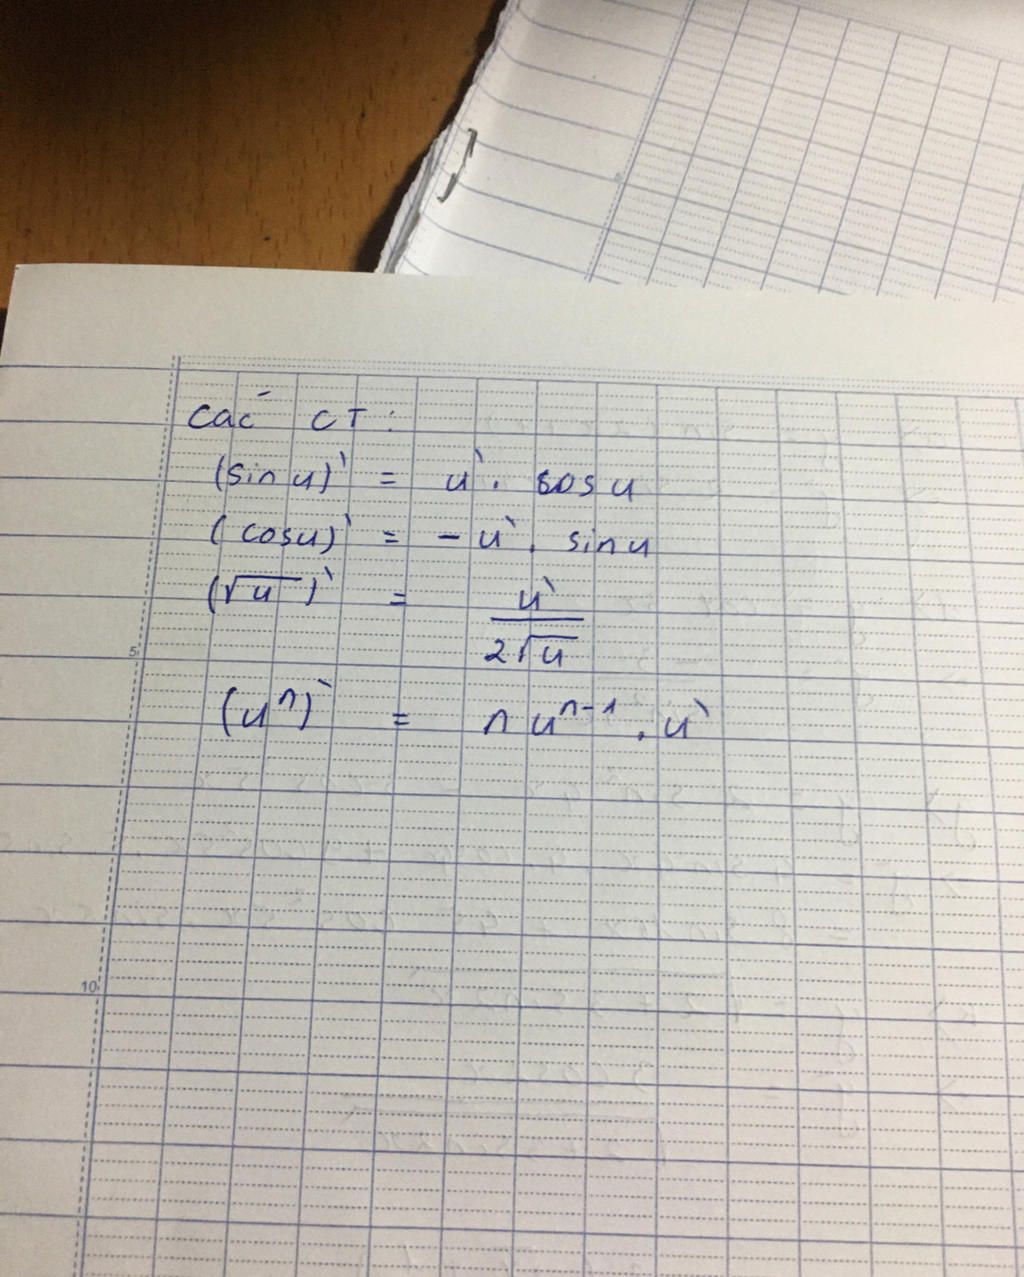 Các CT:
(sin u)` = u`. cos u
(cosu)` = -u`. sinu
(√u)` = u` / 2√u
5
(uⁿ)` = n uⁿ⁻¹. u`
10